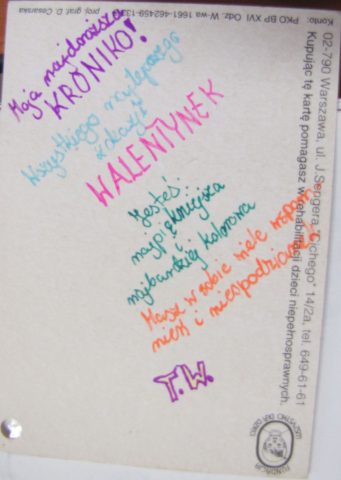 Moja najdroższa
KRONIKO!
Wszystkiego najlepszego
z okazji
WALENTYNEK
Jesteś...
najpiękniejsza
i
najbardziej kolorowa
Masz w sobie wiele wspom-
nień i niespodzianek
T.W.
02-790 Warszawa, ul. J. Sengera "Cichego" 14/2a, tel. 649-61-61
Kupując tę kartę pomagasz w rehabilitacji dzieci niepełnosprawnych.
Konto: PKO BP XVI Odz. W-wa 1661-462459-133
proj. graf. D. Cesarska
FUNDACJA
WSZYSTKO DLA DZIECI